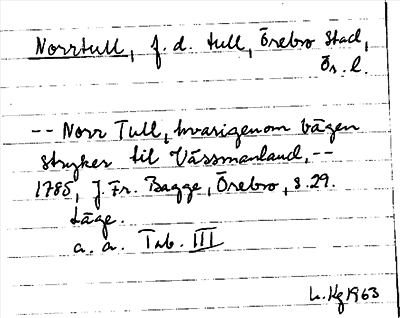 Norrtull, f. d. tull, Örebro stad,
Ör. l.
-- Norr Tull, hvarigenom vägen
stryker til Vässmanland, --
1785, J. Fr. Bagge, Örebro, s. 29.
Läge.
a. a. Tab. III
L. Hg 1963